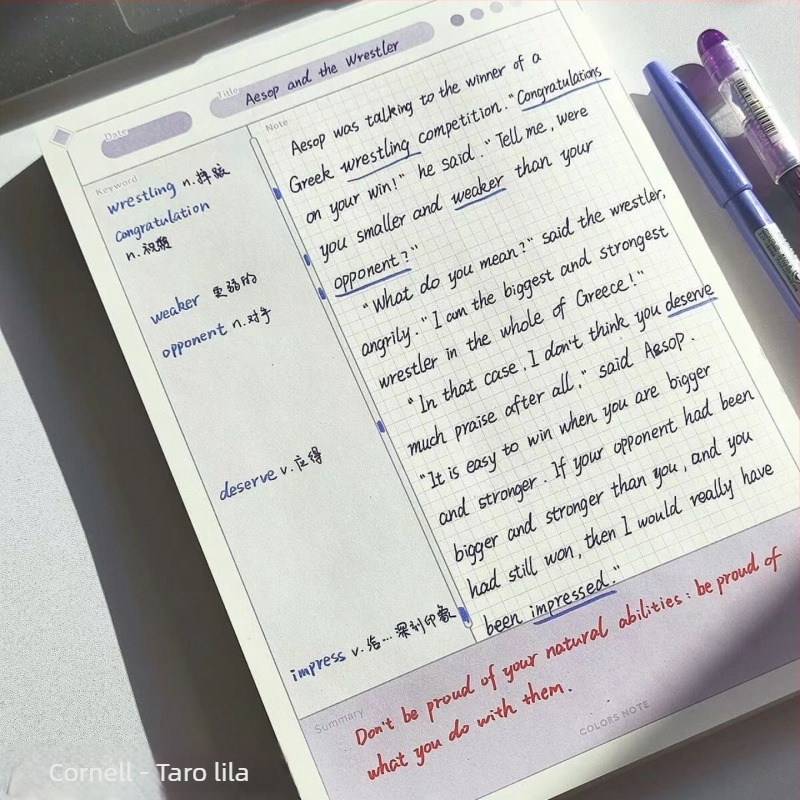 Title
Aesop and the Wrestler
Date
Keyword
wrestling n.摔跤
congratulation
n.祝贺
weaker 更弱的
opponent n.对手
deserve v.应得
impress v.给…深刻印象
Note
Aesop was talking to the winner of a
Greek wrestling competition. "Congratulations
on your win!" he said. "Tell me, were
you smaller and weaker than your
opponent?"
"What do you mean?" said the wrestler,
angrily. "I am the biggest and strongest
wrestler in the whole of Greece!"
"In that case, I don't think you deserve
much praise after all." said Aesop.
"It is easy to win when you are bigger
and stronger. If your opponent had been
bigger and stronger than you, and you
had still won, then I would really have
been impressed."
Summary
Don't be proud of your natural abilities: be proud of
what you do with them.
COLORS NOTE
Cornell - Taro lila